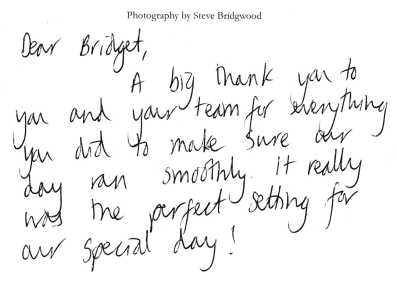 Photography by Steve Bridgwood
Dear Bridget,
A big thank you to
you and your team for everything
you did to make sure our
day ran smoothly. it really
was the perfect setting for
our special day!